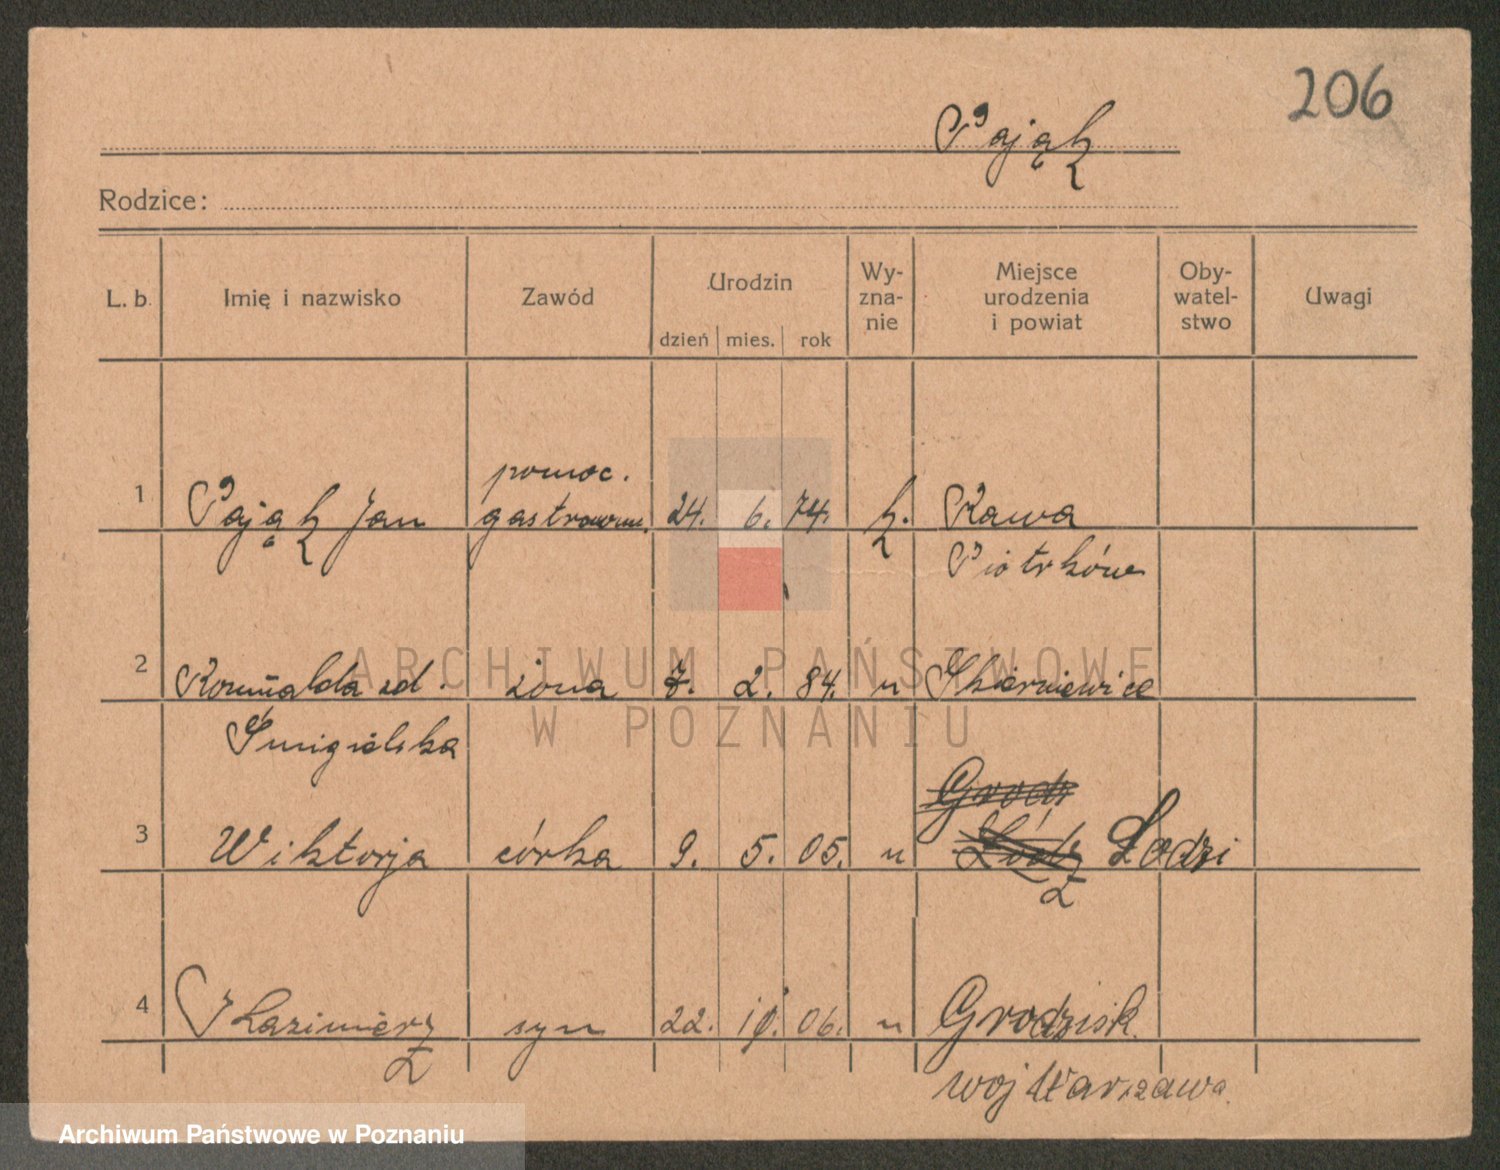 206
Pająk
Rodzice:
L. b. Imię i nazwisko Zawód Urodzin dzień mies. rok Wy-zna-nie Miejsce urodzenia i powiat Oby-watel-stwo Uwagi
pomoc.
1 Pająk Jan gastronom. 24. 6. 74. k. Rawa
Piotrków
2 Romualda zd. żona 7. 2. 84. " Skierniewice
Śmigielska
Grodz
3 Wiktorja córka 9. 5. 05. " Łódź Łodzi
Ł
4 Kazimierz syn 22. 10. 06. " Grodzisk
Ł
woj Warszawa.
ARCHIWUM PAŃSTWOWE
W POZNANIU
Archiwum Państwowe w Poznaniu